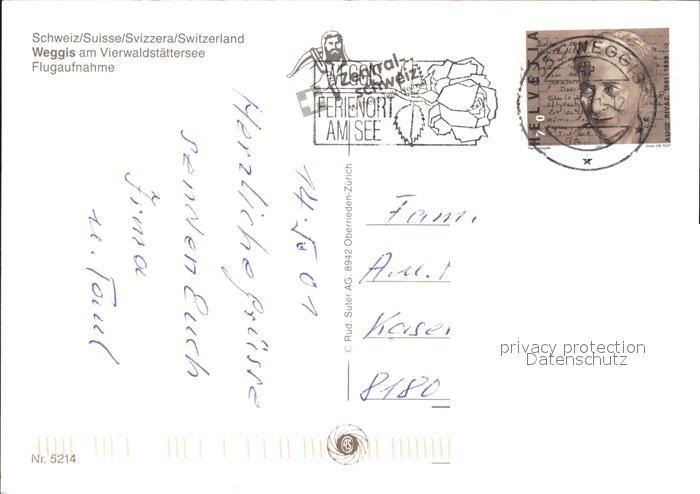 Schweiz/Suisse/Svizzera/Switzerland
Weggis am Vierwaldstättersee
Flugaufnahme
WEGGIS
Zentral-
schweiz
FERIENORT
AM SEE
HELVETIA
70
ALICE RIVAZ 1901-1998
WEGGIS
14. 5. 01
Herzliche Grüsse
senden Euch
Irma
u. Paul
© Rud. Suter AG, 8942 Oberrieden-Zürich
Fam.
A. u.
Kaser
8180
privacy protection
Datenschutz
Nr. 5214